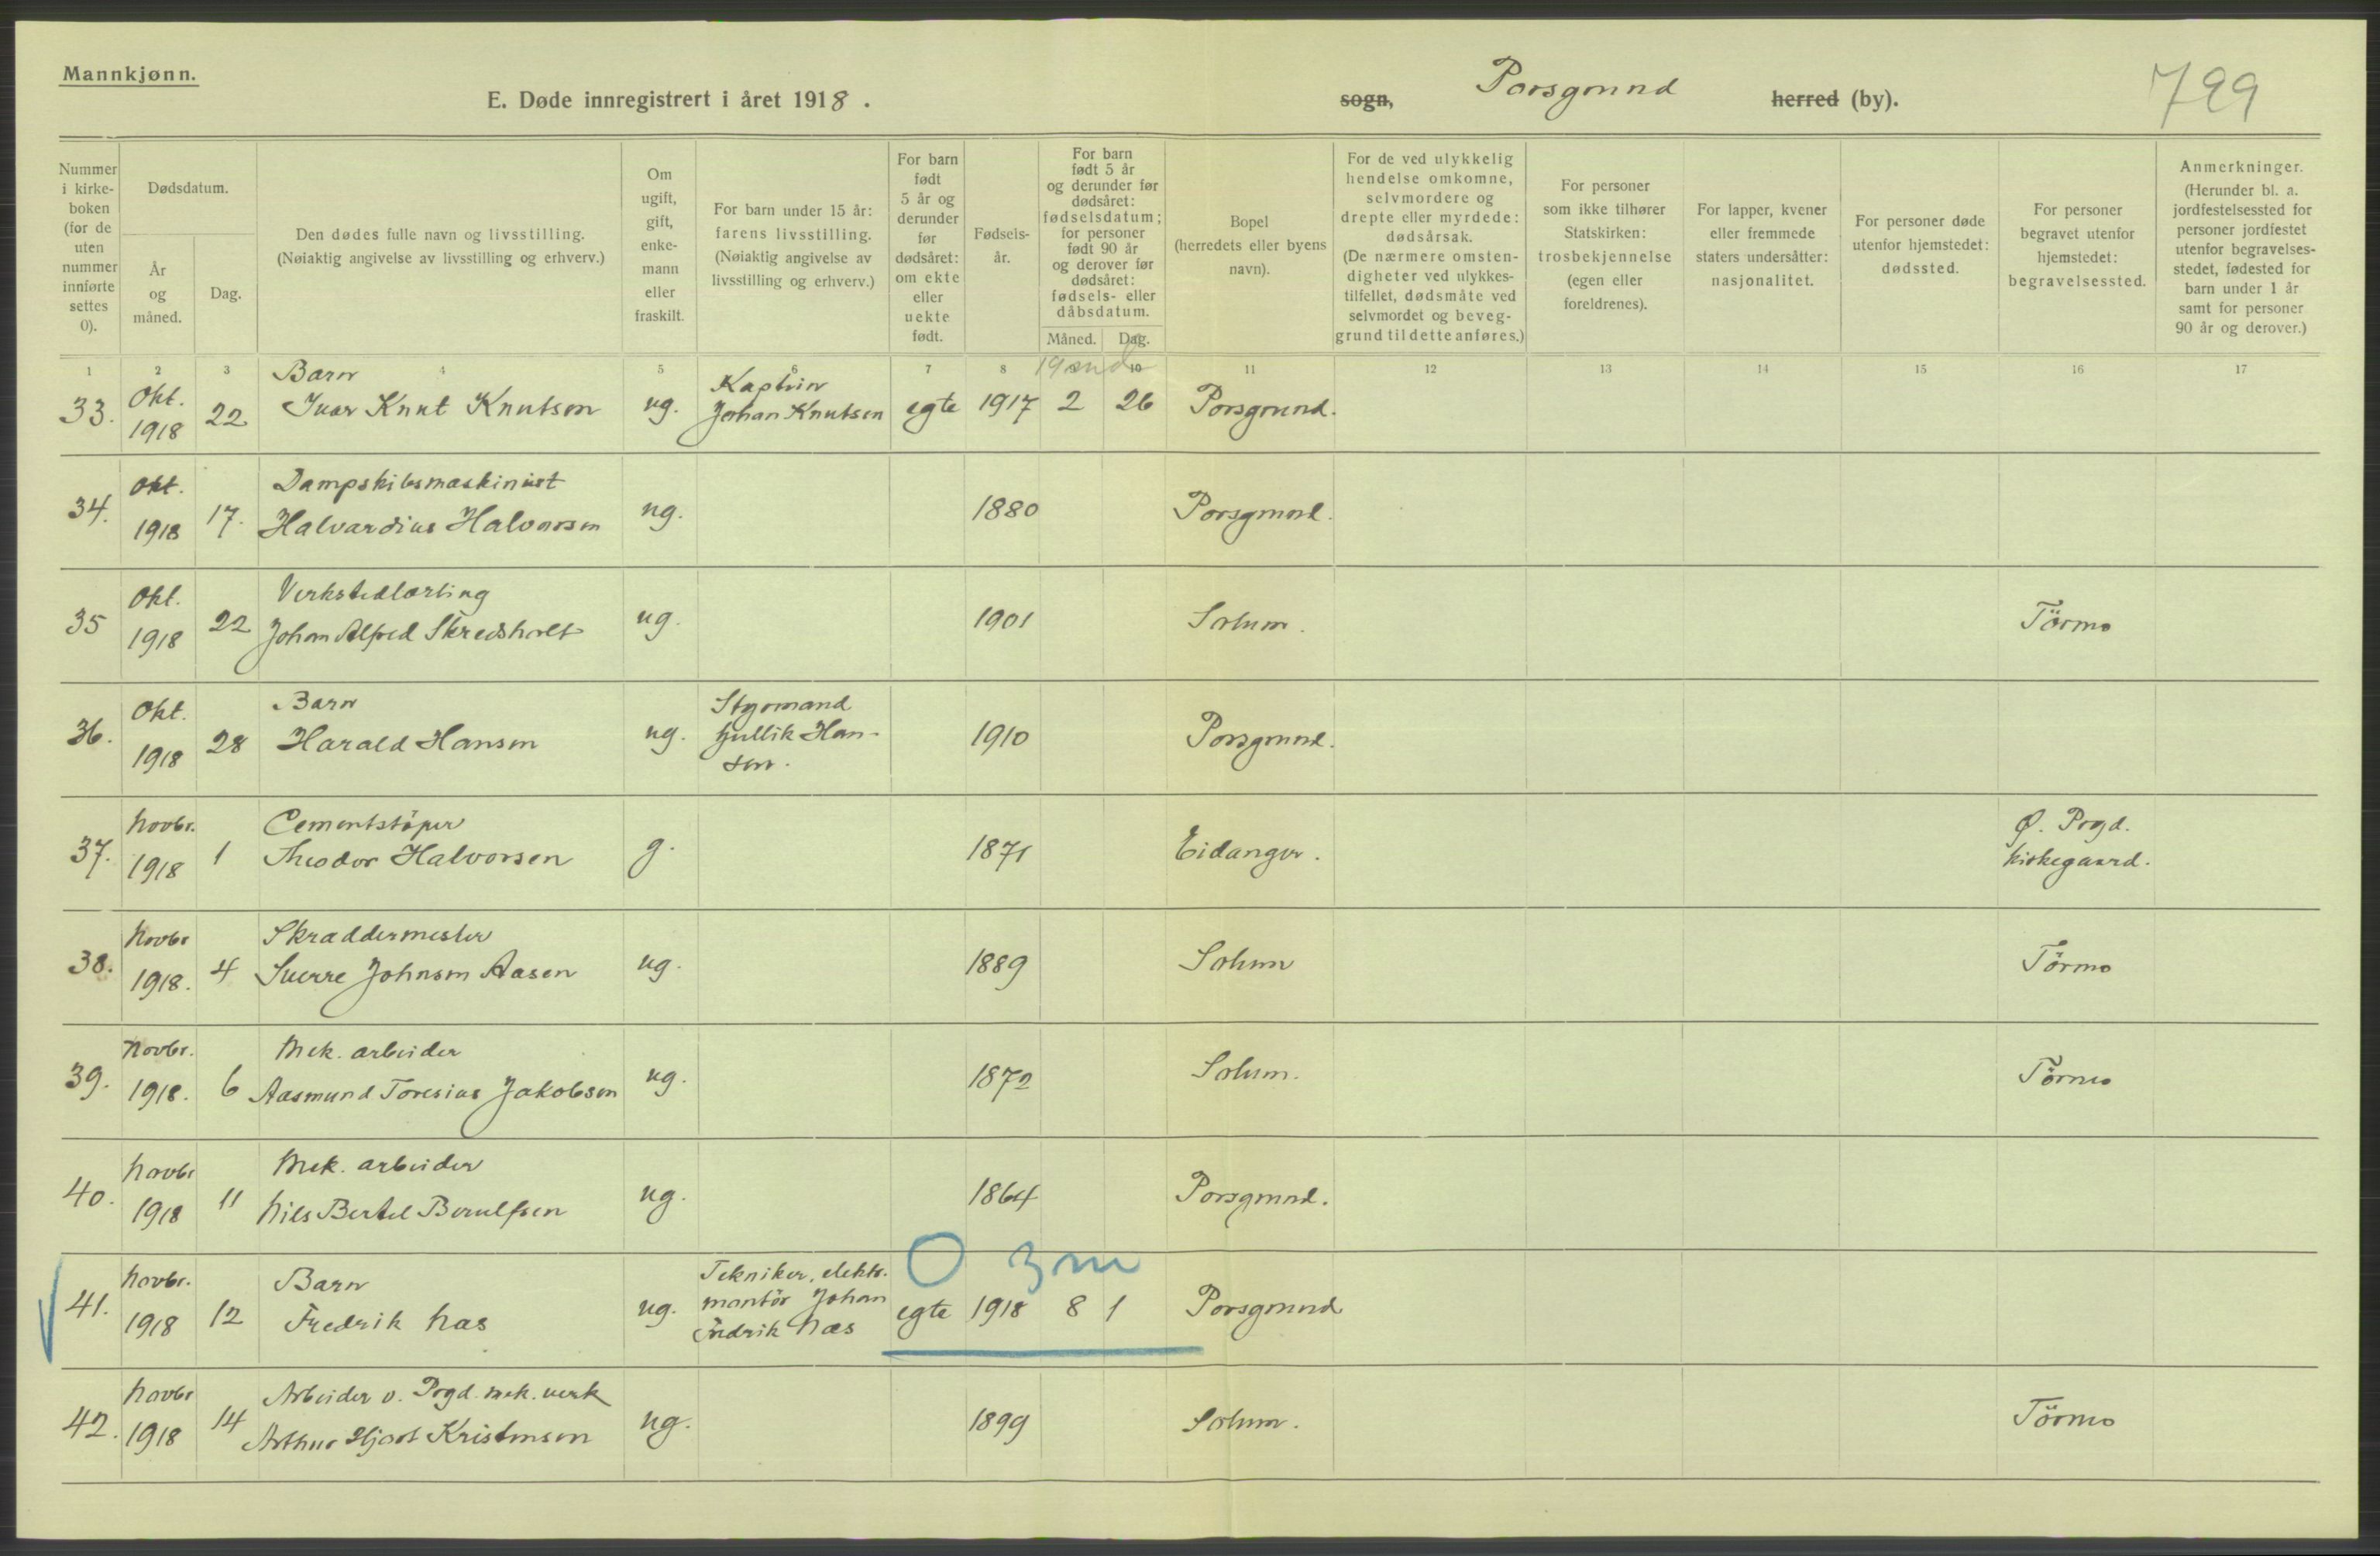 Mannkjønn.
E. Døde innregistrert i året 1918.
sogn, Porsgrund herred (by).
799
Nummer i kirke-boken (for de uten nummer innførte settes 0).
Dødsdatum.
År og måned.
Dag.
Den dødes fulle navn og livsstilling.
(Nøiaktig angivelse av livsstilling og erhverv.)
Om ugift, gift, enke-mann eller fraskilt.
For barn under 15 år: farens livsstilling. (Nøiaktig angivelse av livsstilling og erhverv.)
For barn født 5 år og derunder før dødsåret: om ekte eller uekte født.
Fødsels-år.
For barn født 5 år og derunder før dødsåret: fødselsdatum; for personer født 90 år og derover før dødsåret: fødsels- eller dåbsdatum.
Måned. Dag.
Bopel (herredets eller byens navn).
For de ved ulykkelig hendelse omkomne, selvmordere og drepte eller myrdede: dødsårsak. (De nærmere omsten-digheter ved ulykkes-tilfellet, dødsmåte ved selvmordet og beveg-grund til dette anføres.)
For personer som ikke tilhører Statskirken: trosbekjennelse (egen eller foreldrenes).
For lapper, kvener eller fremmede staters undersåtter: nasjonalitet.
For personer døde utenfor hjemstedet: dødssted.
For personer begravet utenfor hjemstedet: begravelsessted.
Anmerkninger. (Herunder bl. a. jordfestelsessted for personer jordfestet utenfor begravelses-stedet, fødested for barn under 1 år samt for personer 90 år og derover.)
1 2 3 4 5 6 7 8 10 11 12 13 14 15 16 17
33. Okt. 1918 22 Barn
Ivar Knut Knutsen ug. Kaptein
Johan Knutsen egte 1917 2 26 Porsgrund.
34. Okt. 1918 17. Dampskibsmaskinist
Halvardius Halvorsen ug. 1880 Porsgrund.
35 Okt. 1918 22 Verkstedlærling
Johan Alfred Skredsholt ug. 1901 Solum. Törmo
36. Okt. 1918 28 Barn
Harald Hansen ug. Styrmand
Gullik Han-
sen. 1910 Porsgrund.
37. Novbr. 1918 1 Cementstöper
Theodor Halvorsen g. 1871 Eidanger. Ø. Prgd.
kirkegaard.
38. Novbr 1918. 4 Skræddermester
Sverre Johnsen Aasen ug. 1889 Solum Törmo
39. Novbr. 1918. 6 Mek. arbeider
Aasmund Toresius Jakobsen ug. 1872 Solum. Törmo
40. Novbr 1918 11 Mek. arbeider
Nils Bertel Berulfsen ug. 1864 Porsgrund.
O 3 m
41. Novbr. 1918 12 Barn
Fredrik Næs ug. Tekniker, elektr.
montör Johan
Fredrik Næs egte 1918 8 1 Porsgrund
42. Novbr 1918 14 Arbeider v. Prgd. mek. verk
Arthur Hjort Kristensen ug. 1899 Solum. Törmo